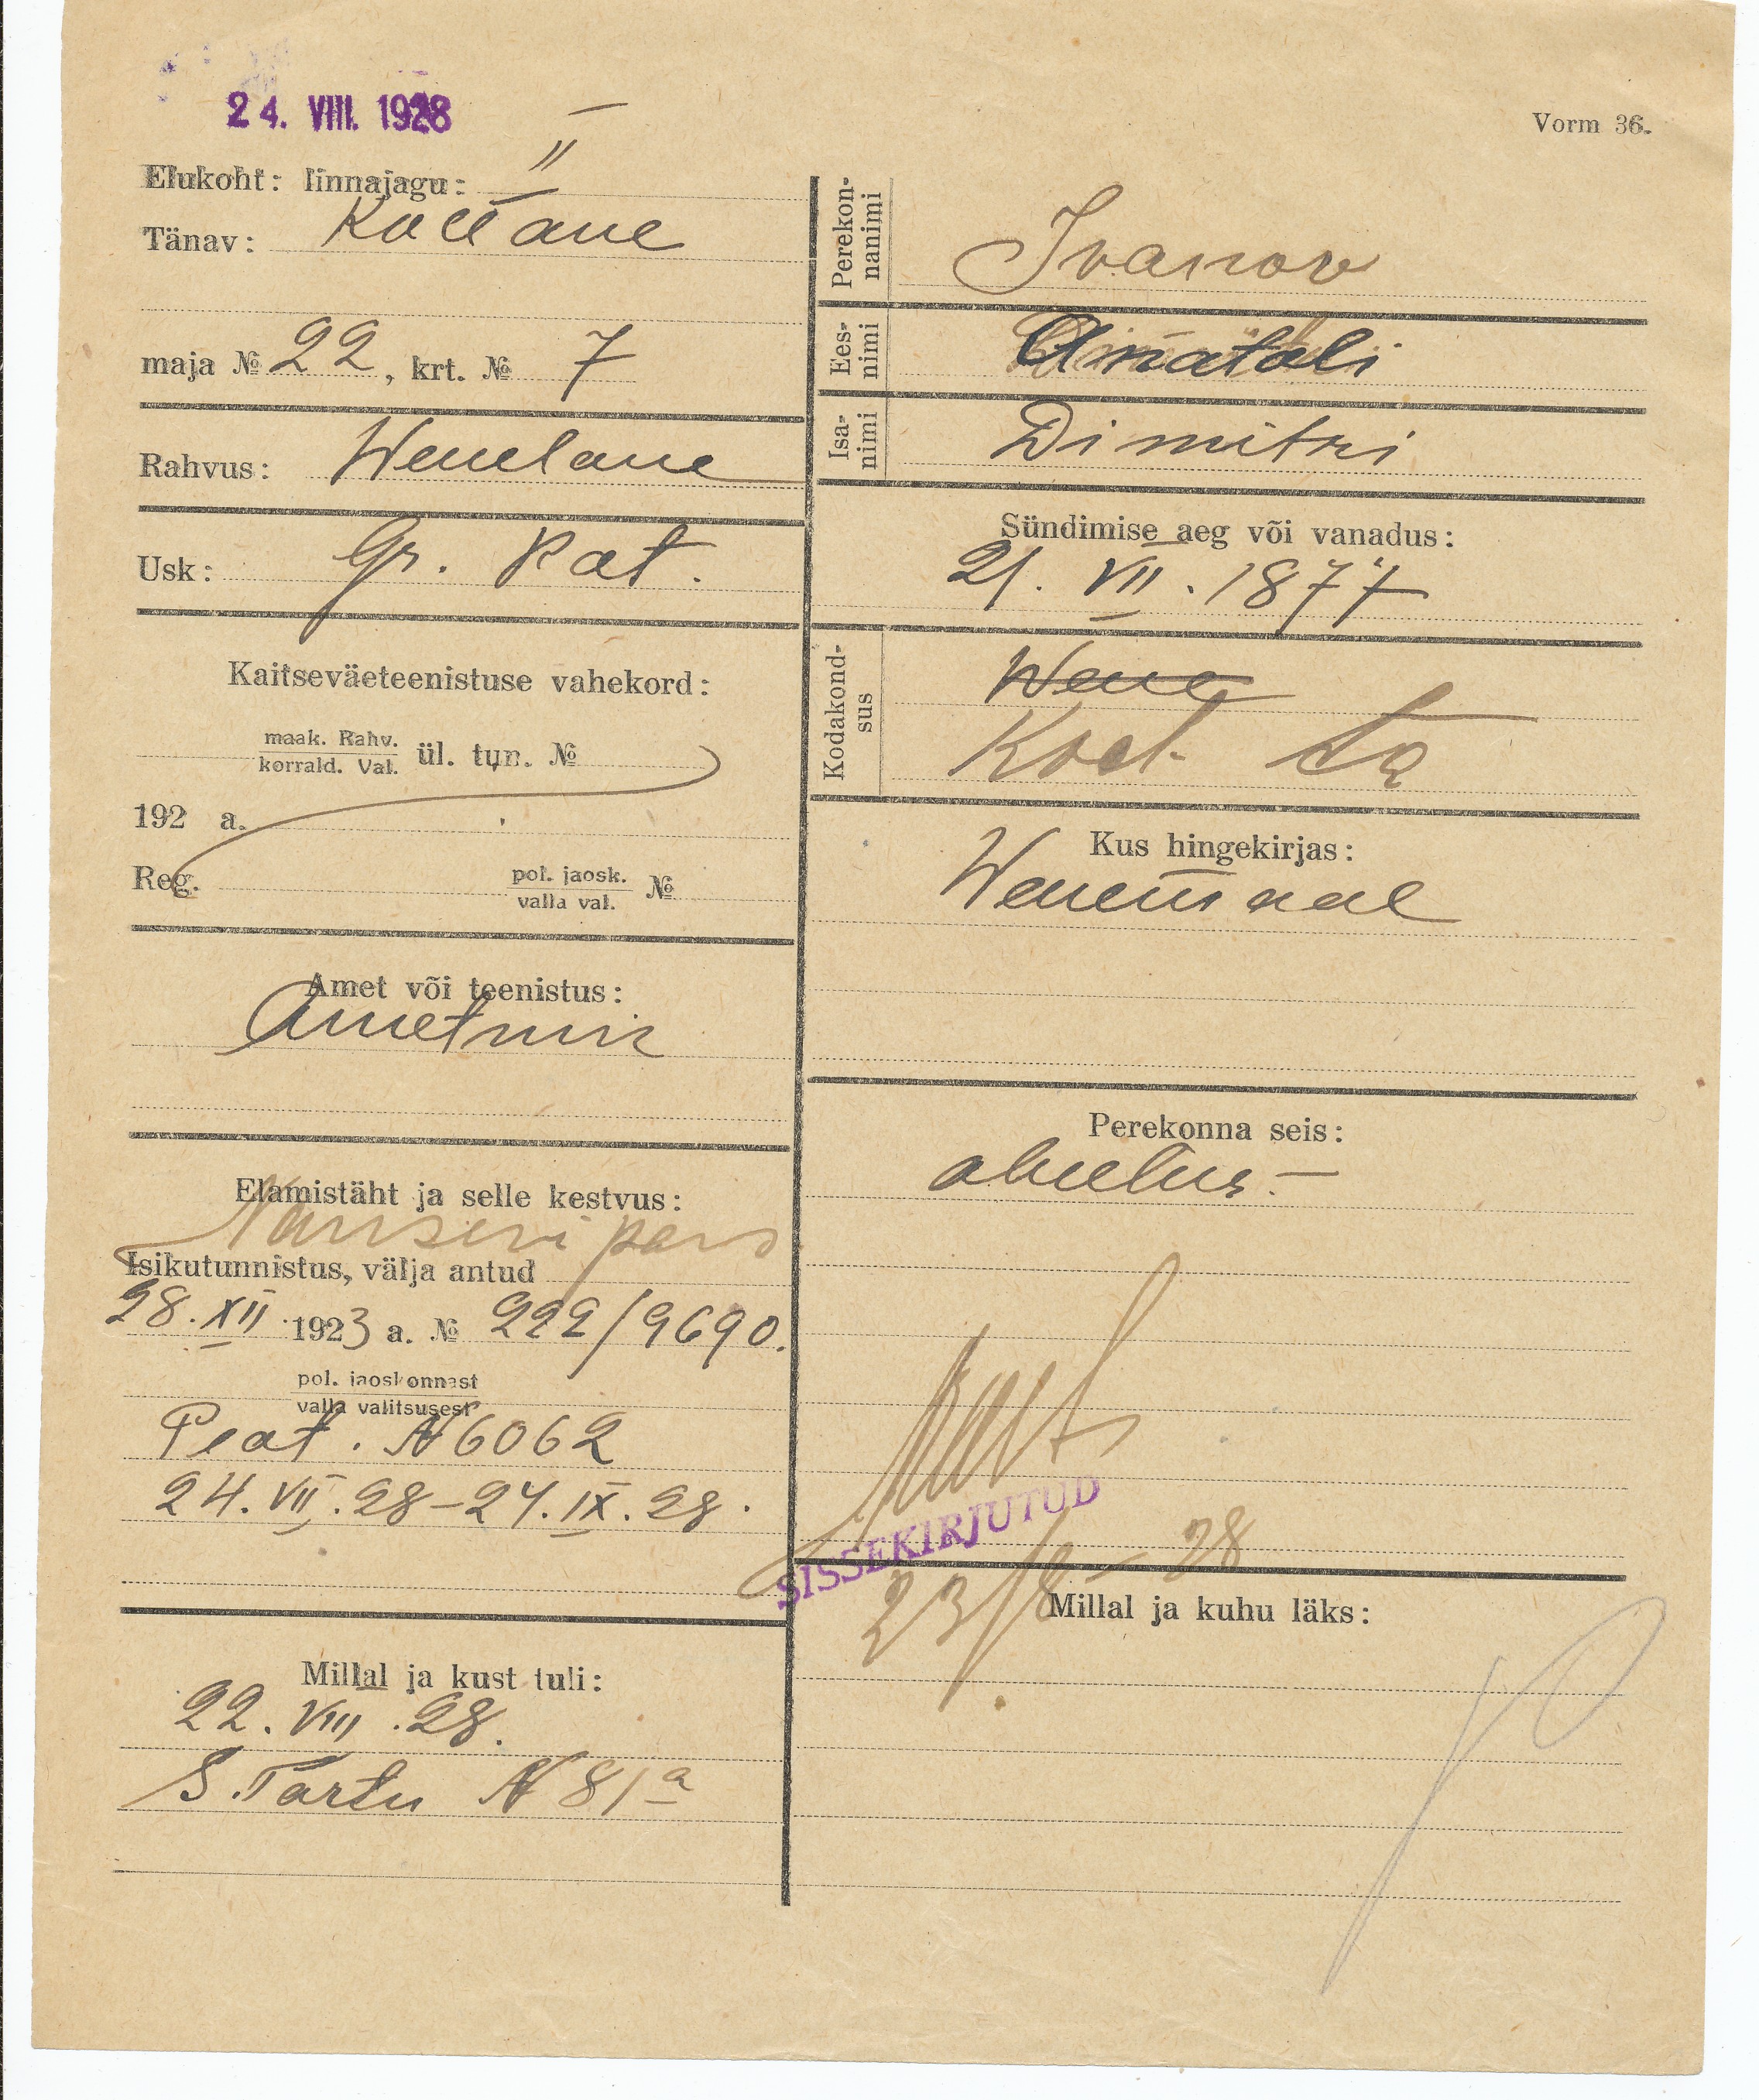 24. VIII. 1928
Vorm 36.
Elukoht: linnajagu: II
Tänav: Kollane
maja № 22, krt. № 7
Rahvus: Wenelane
Usk: Gr. Kat.
Kaitseväeteenistuse vahekord:
maak. Rahv.
korrald. Val. ül. tun. №
192 a.
Reg. pol. jaosk.
valla val. №
Amet või teenistus:
Ametnik
Elamistäht ja selle kestvus:
Nanseni pass
Isikutunnistus, välja antud
28. XII 1923 a. № 222/9690.
pol. jaoskonnast
valla valitsusest
Peat. N 6062
24. VII. 28 – 24. IX. 28.
Millal ja kust tuli:
22. VIII. 28.
S. Tartu N 81a
Perekonnanimi
Ivanov
Eesnimi
Anatoli
Isanimi
Dimitri
Sündimise aeg või vanadus:
21. VII. 1877
Kodakondsus
Wene
Kod. ta
Kus hingekirjas:
Wenemaal
Perekonna seis:
abielus –
SISSEKIRJUTUD
23/8 – 28
Millal ja kuhu läks: